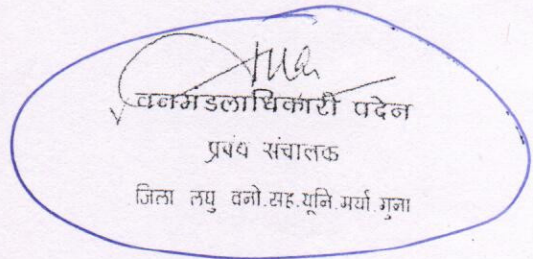 वनमंडलाधिकारी पदेन
प्रबंध संचालक
जिला लघु वनो.सह.यूनि.मर्या.गुना